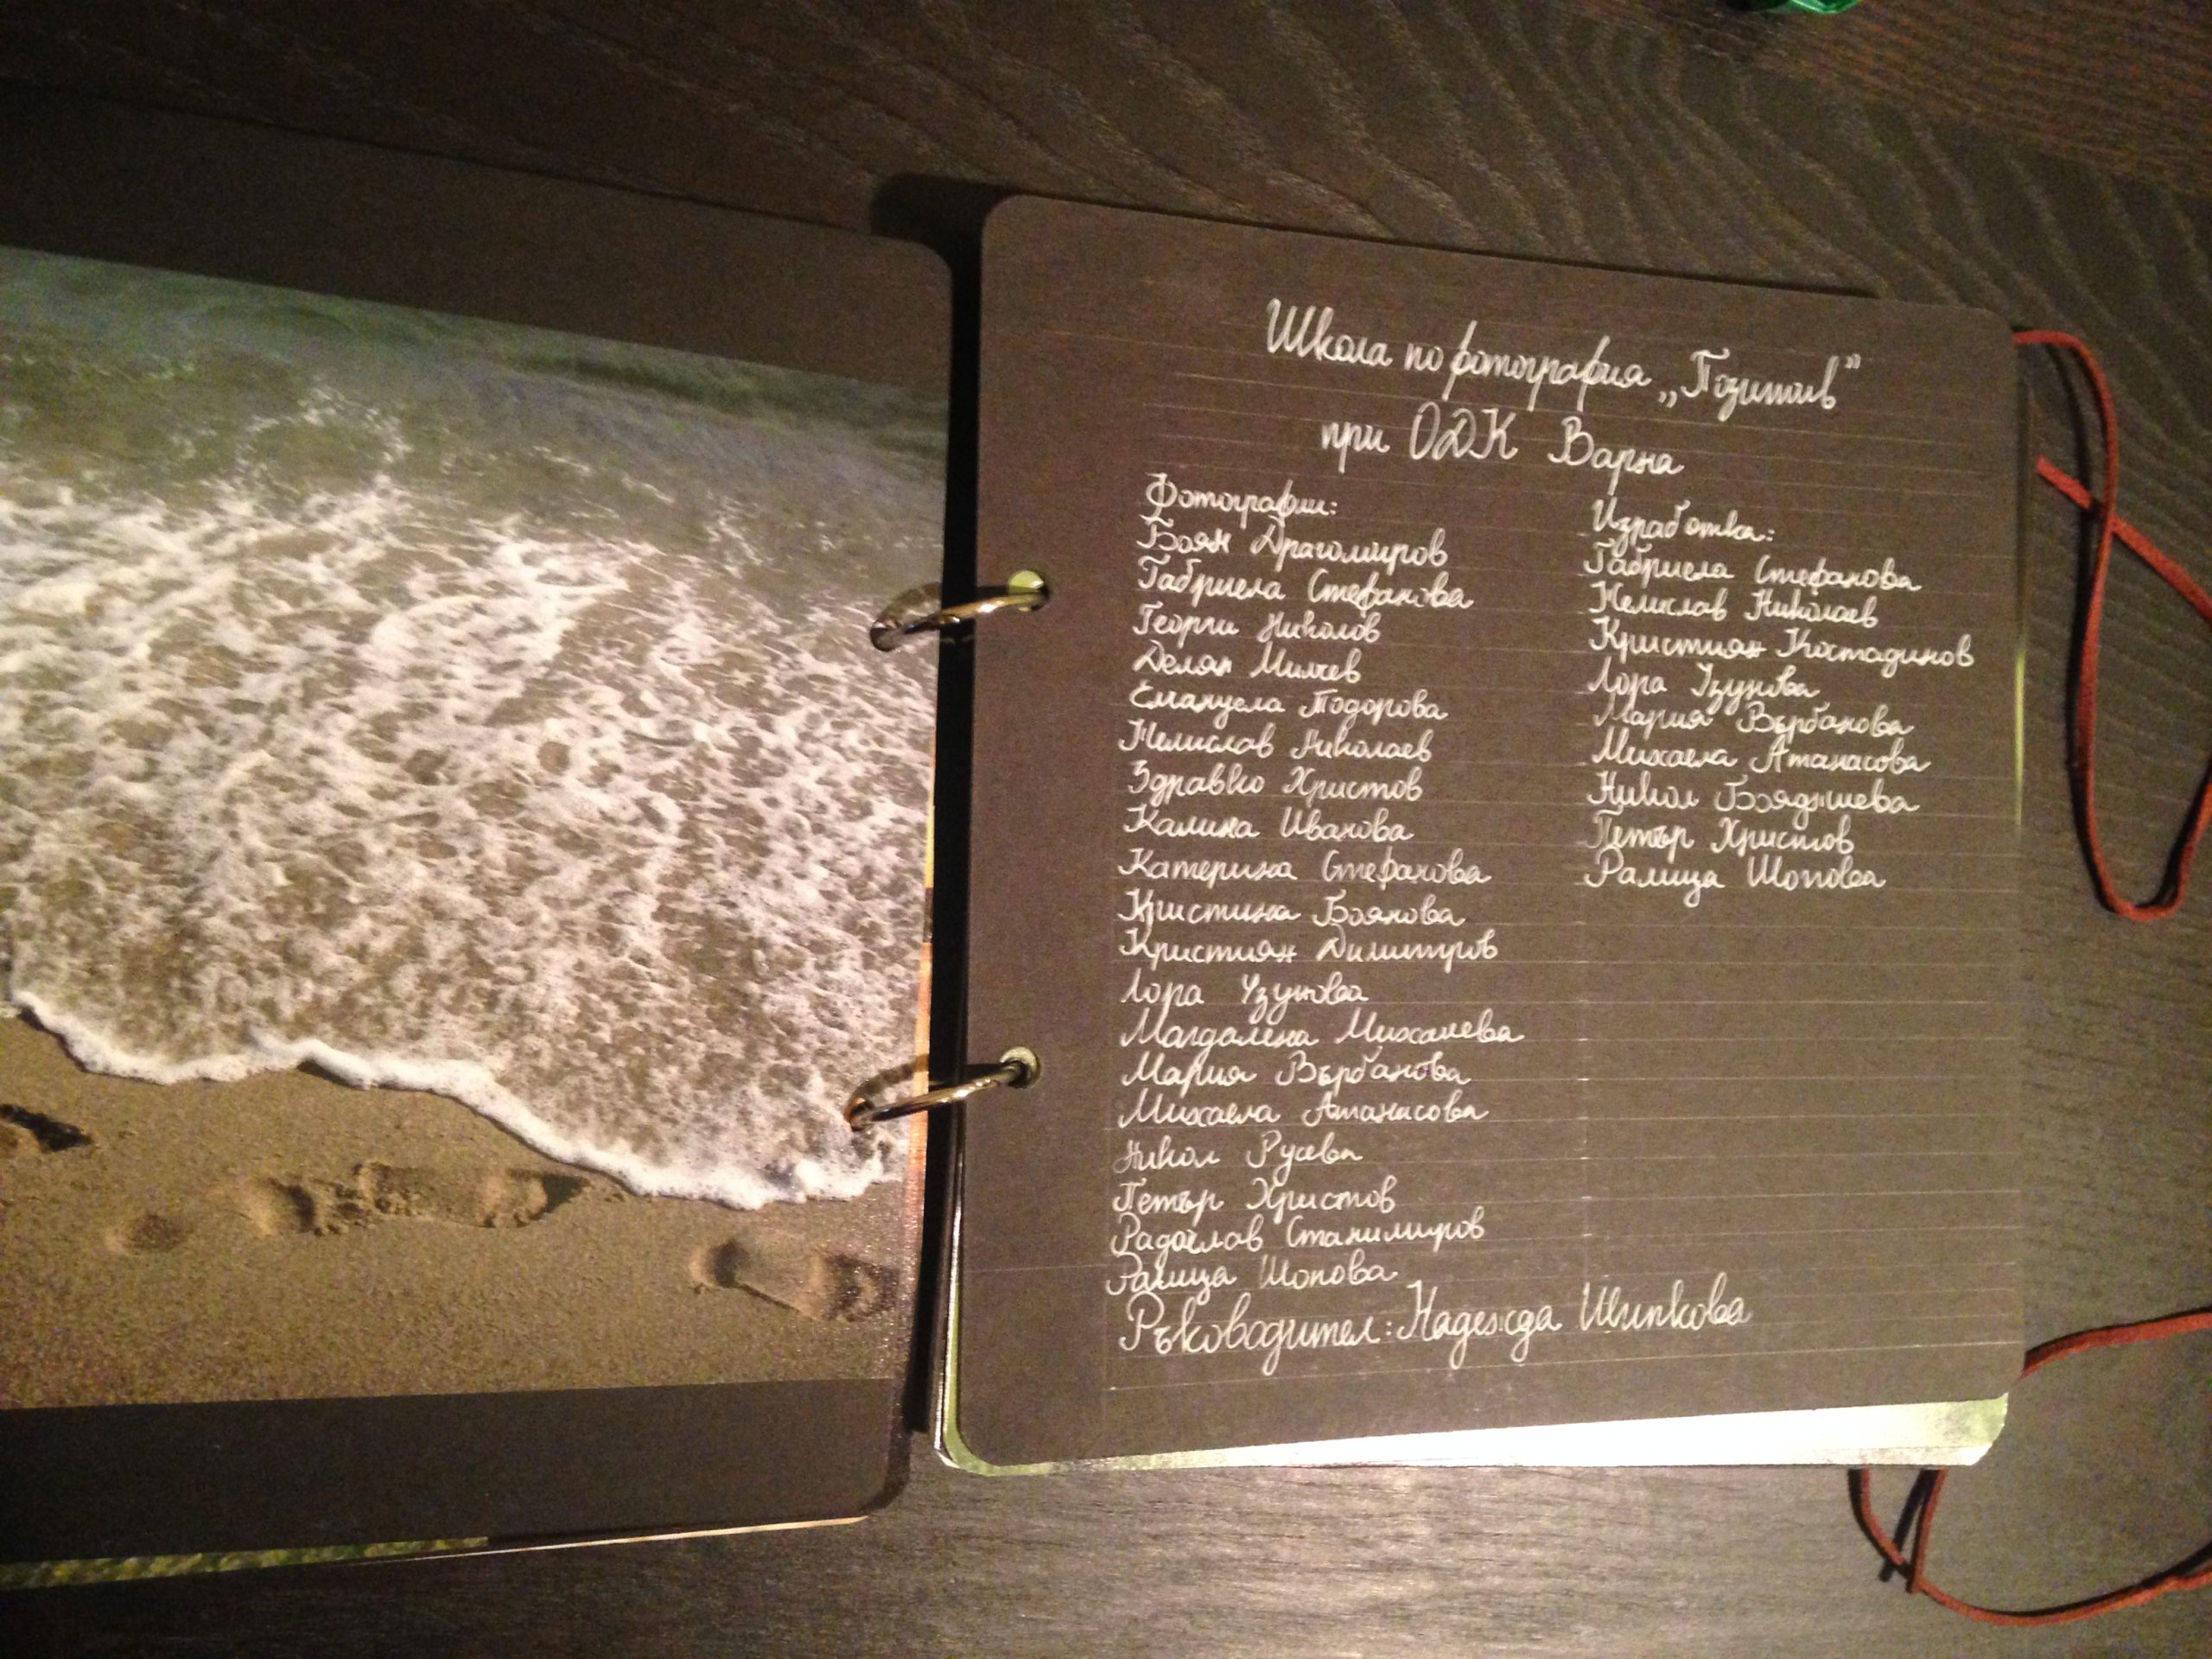 Школа по фотография „Позитив"
при ОДК Варна
Фотографии:
Боян Драгомиров
Габриела Стефанова
Георги Николов
Делян Милчев
Емануела Тодорова
Желислав Николаев
Здравко Христов
Калина Иванова
Катерина Стефанова
Кристина Боянова
Кристиян Димитров
Лора Узунова
Магдалена Михалева
Мария Върбанова
Михаела Атанасова
Никол Русева
Петър Христов
Радослав Станимиров
Ралица Шопова
Изработка:
Габриела Стефанова
Желислав Николаев
Кристиян Костадинов
Лора Узунова
Мария Върбанова
Михаела Атанасова
Никол Бояджиева
Петър Христов
Ралица Шопова
Ръководител: Надежда Шипкова